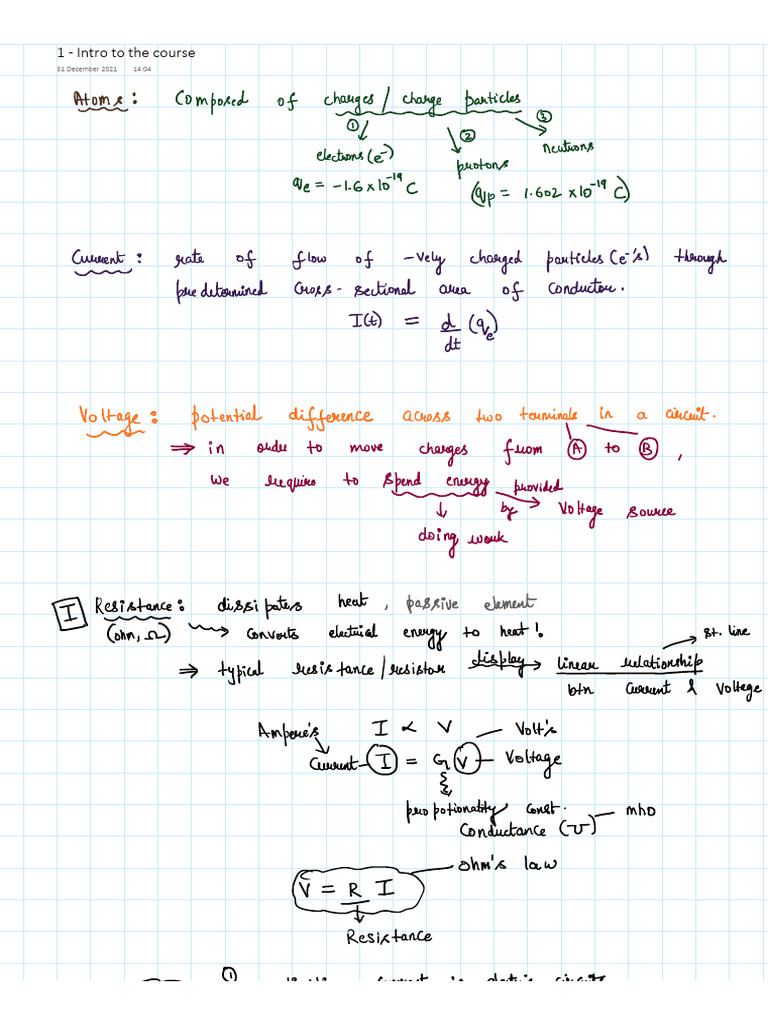 1 - Intro to the course
31 December 2021 14:04
Atoms: Composed of charges / charge particles
① ② ③
electrons (e⁻) protons neutrons
qe = -1.6 x 10⁻¹⁹ C (qp = 1.602 x 10⁻¹⁹ C)
Current: rate of flow of -vely charged particles (e⁻'s) through
predetermined cross-sectional area of conductor.
I(t) = d/dt (qe)
Voltage: potential difference across two terminals in a circuit.
⇒ in order to move charges from Ⓐ to Ⓑ,
we require to spend energy provided by Voltage source
↓
doing work
I Resistance: dissipates heat, passive element
(ohm, Ω) → Converts electrical energy to heat!
⇒ typical resistance/resistor display → linear relationship → st. line
btn current & Voltage
Ampere's I ∝ V Volt's
Current - I = G V - Voltage
propotionality const.
Conductance (℧) - mho
V = R I ohm's law
↓
Resistance
①
current in electric circuits